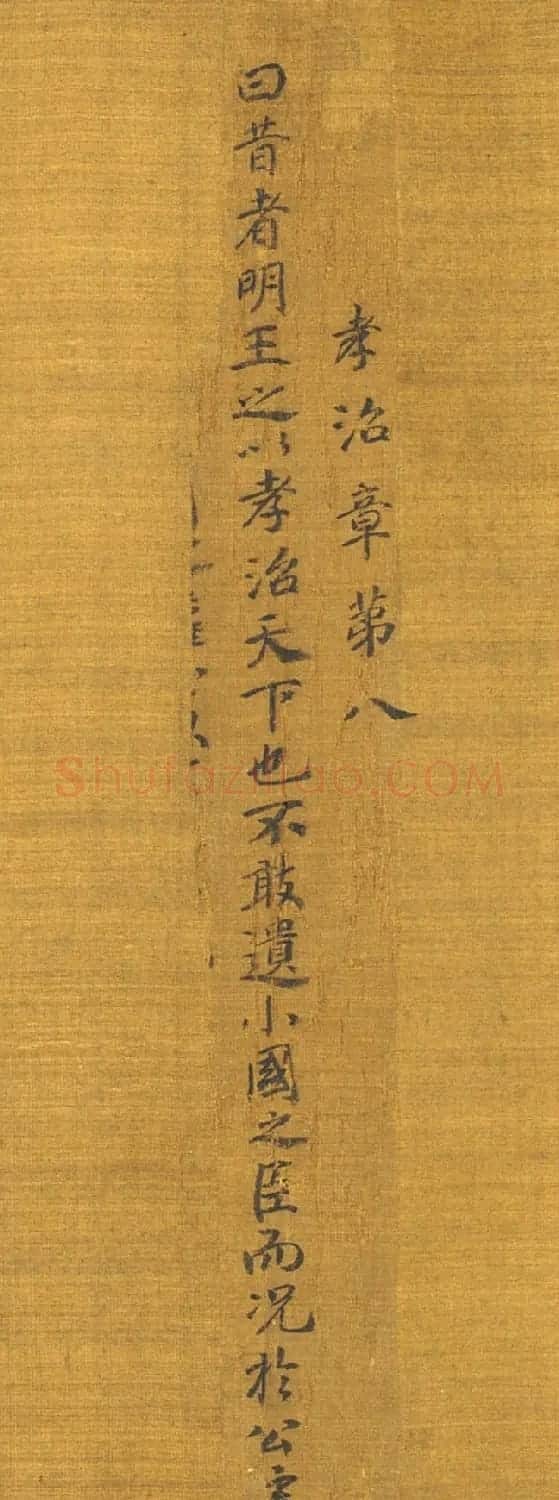 孝治章第八
曰昔者明王之以孝治天下也不敢遺小國之臣而况於公
ShufaZidao.COM